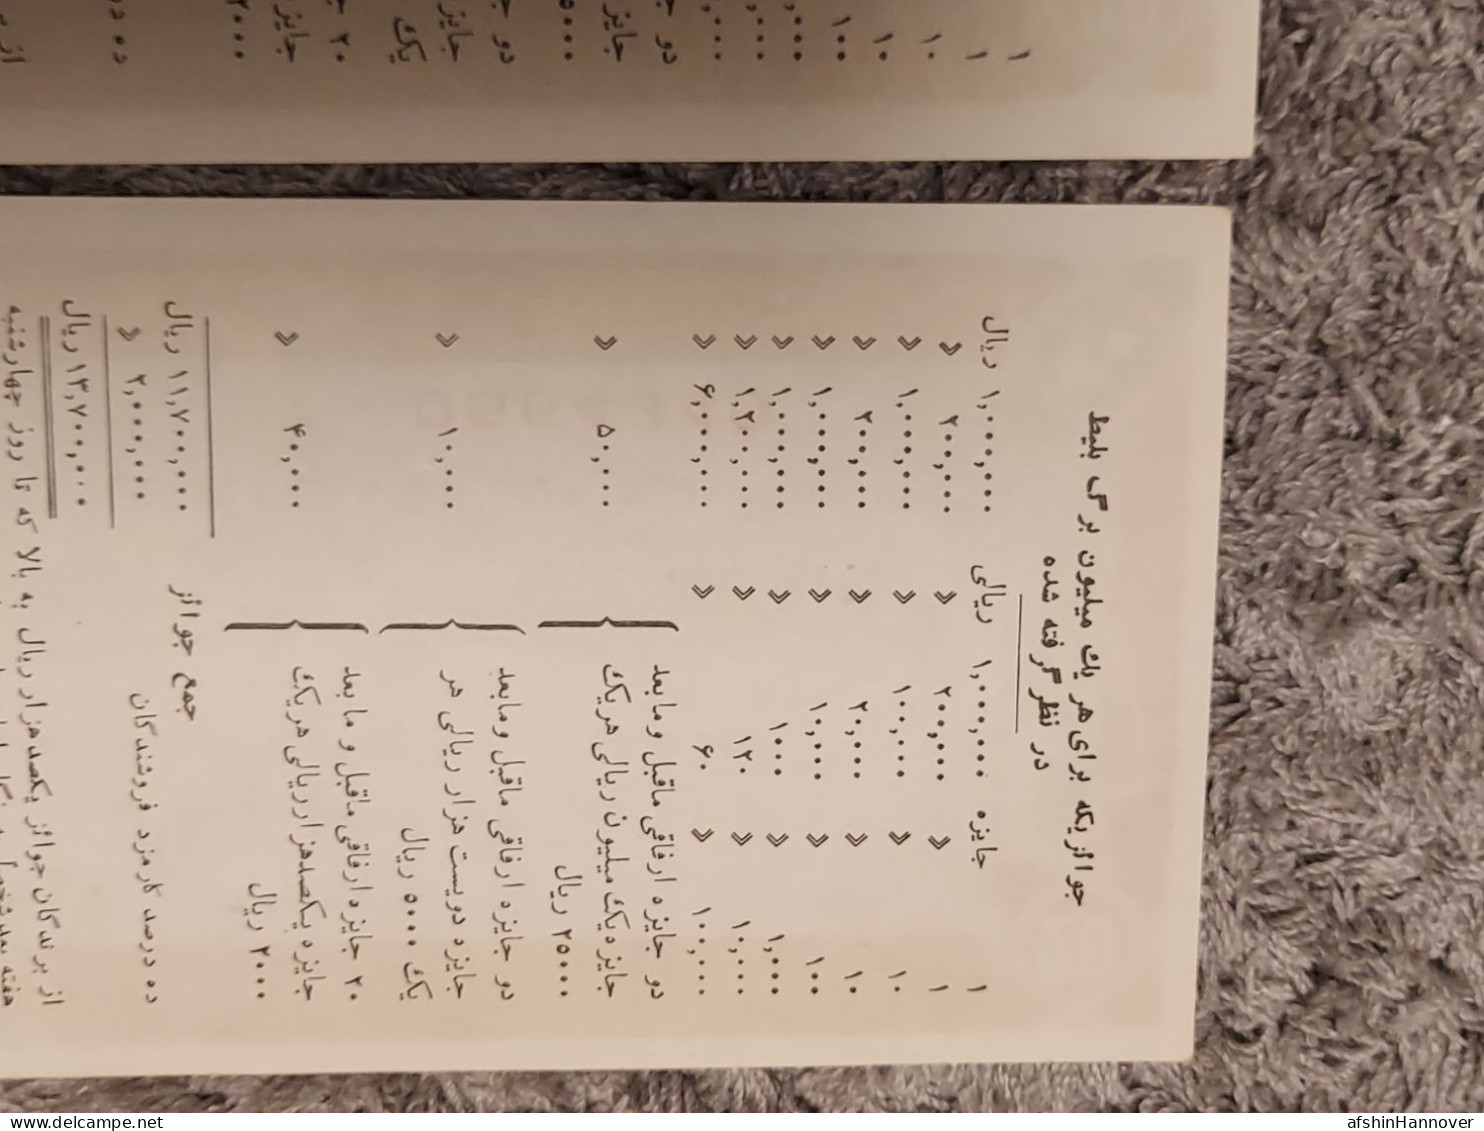 جوائزیکه برای هر یك میلیون برگ بلیط
در نظر گرفته شده
۱ جایزه ۱,۰۰۰,۰۰۰ ریالی ۱,۰۰۰,۰۰۰ ریال
۱ » ۲۰۰,۰۰۰ » ۲۰۰,۰۰۰ »
۱۰ » ۱۰۰,۰۰۰ » ۱,۰۰۰,۰۰۰ »
۱۰ » ۲۰,۰۰۰ » ۲۰۰,۰۰۰ »
۱۰۰ » ۱۰,۰۰۰ » ۱,۰۰۰,۰۰۰ »
۱,۰۰۰ » ۱۰۰۰ » ۱,۰۰۰,۰۰۰ »
۱۰,۰۰۰ » ۱۲۰ » ۱,۲۰۰,۰۰۰ »
۱۰۰,۰۰۰ » ۶۰ » ۶,۰۰۰,۰۰۰ »
دو جایزه ارفاقی ماقبل ومابعد
جایزه یك میلیون ریالی هریك
۲۵۰۰۰ ریال
۵۰,۰۰۰ »
دو جایزه ارفاقی ماقبل ومابعد
جایزه دویست هزار ریالی هر
یك ۵۰۰۰ ریال
۱۰,۰۰۰ »
۲۰ جایزه ارفاقی ماقبل و مابعد
جایزه یکصدهزار ریالی هریك
۲۰۰۰ ریال
۴۰,۰۰۰ »
جمع جوائز ۱۱,۷۰۰,۰۰۰ ریال
ده درصد کارمزد فروشندگان ۲,۰۰۰,۰۰۰ »
۱۳,۷۰۰,۰۰۰ ریال
از برندگان جوائز یکصدهزار ریال به بالا که تا روز چهارشنبه
هفته بعد
delcampe.net
afshinHannover